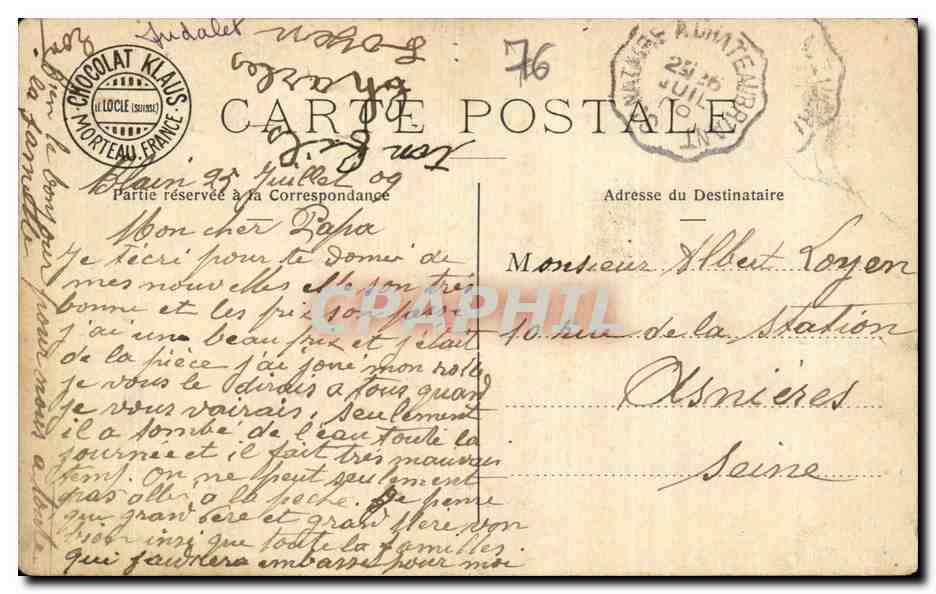 Judalet
CHOCOLAT KLAUS
LE LOCLE (SUISSE)
MORTEAU. FRANCE
76
ST NAZAIRE A CHATEAUBRIANT
25 JUIL
CARTE POSTALE
Partie réservée à la Correspondance
Adresse du Destinataire
Blain 25 Juillet 09
Mon cher Papa
Je t'écri pour te donner de
mes nouvelles elle son très
bonne et les prix son passé
j'ai un beau prix et j'était
de la pièce j'ai joué mon rolle
je vous le dirais a tous quand
je vous vairais, seulement
il a tombé de l'eau toute la
journée et il fait très mauvais
temp. On ne peut seulement
pas aller a la peche. Je pense
que grand Père et grand Mere von
bien insi que toute la familles.
qui j'aimera embasse pour moi
bien le bonjour pour nous a toute
la famille
ton fils
Charles
Loyen
Monsieur Albert Loyen
10 rue de la Station
Asnières
Seine
CPAPHIL